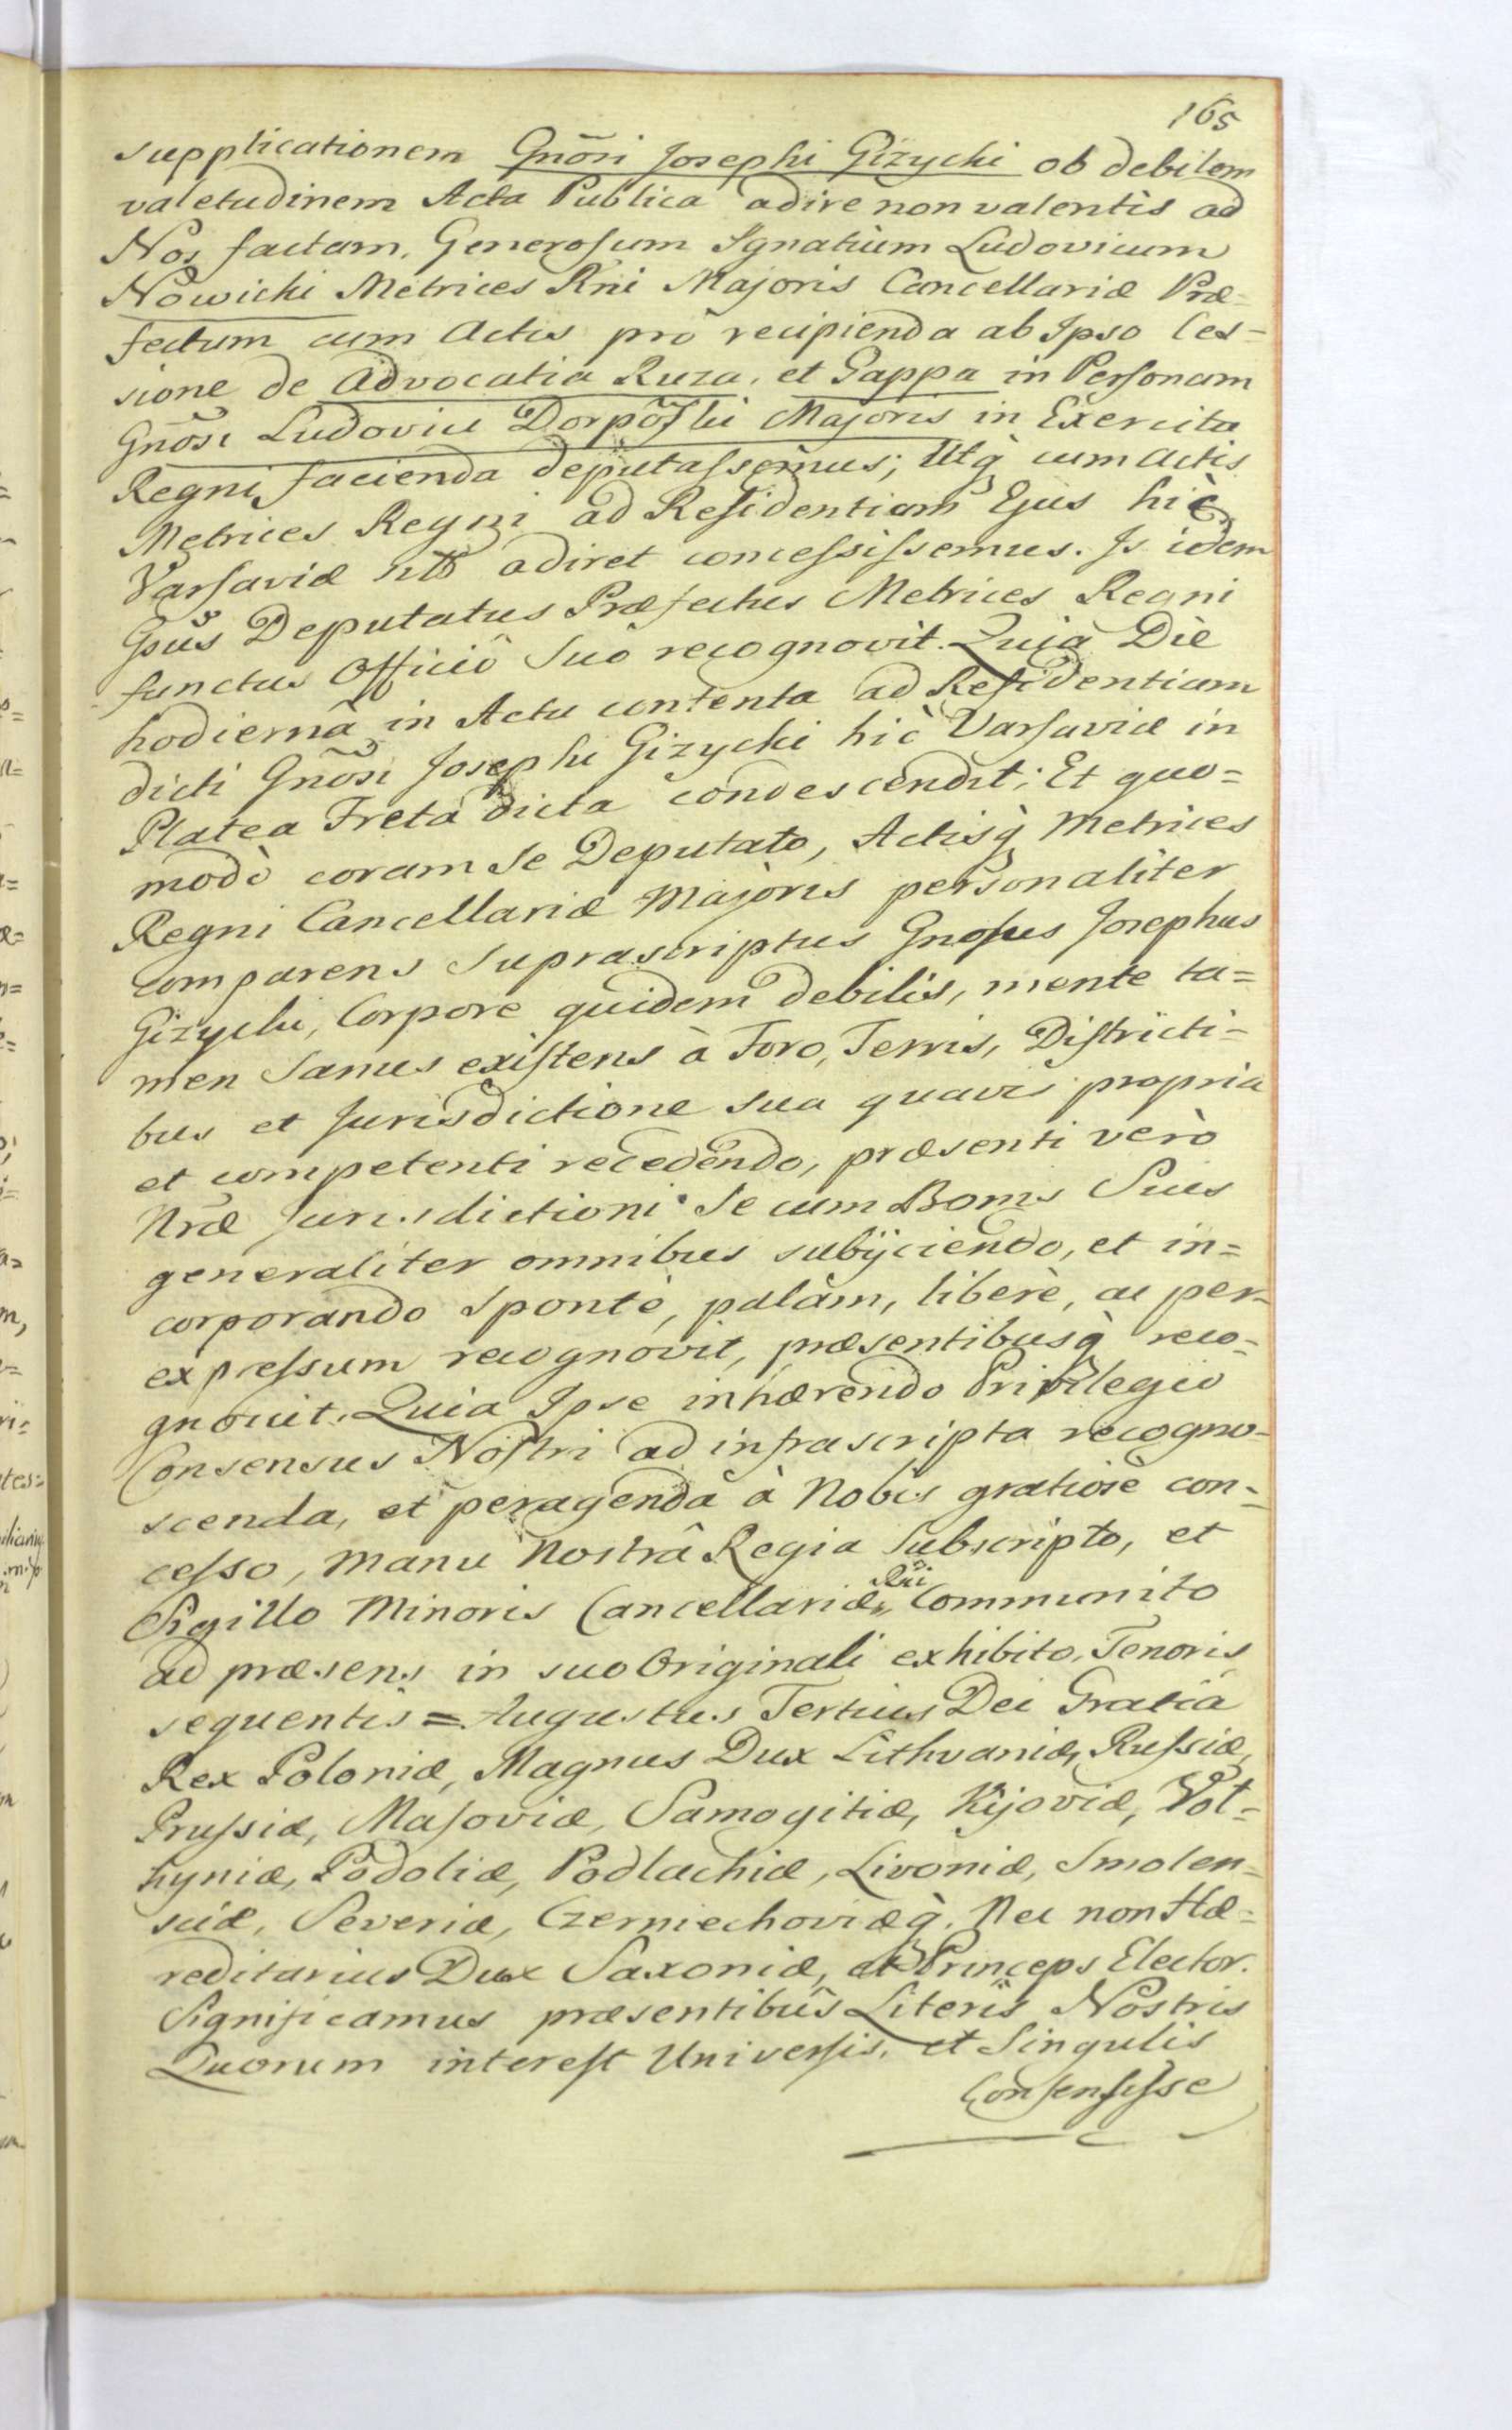 165
supplicationem Gnõsi Josephi Gizycki ob debilem
valetudinem Acta Publica adire non valentis ad
Nos factam, Generosum Ignatium Ludovicum
Nowicki Metrices Rni Majoris Cancellariæ Præ=
fectum cum Actis pro recipienda ab Ipso Ces=
sione de Advocatia Ruza, et Gappa in Personam
Gnõsi Ludovici Dorpõski Majoris in Exercitu
Regni facienda deputassemus; Utq̀ cum Actis
Metrices Regni ad Residentiam Ejus hic
Varsaviæ adiret concessissemus. Is idem
Gsus Deputatus Præfectus Metrices Regni
functus Officiô Suô recognovit. Quia Die
hodiernâ in Actu contenta ad Residentiam
dicti Gnõsi Josephi Gizycki hic Varsaviæ in
Platea Freta dicta condescendit; Et quo=
modò coram Se Deputato, Actisq̀ Metrices
Regni Cancellariæ Majoris personaliter
comparens Suprascriptus Gnosus Josephus
Gizycki, Corpore quidem debilis, mente ta=
men Sanus existens à Foro, Terris, Districti=
bus et Jurisdictione sua quavis propria
et competenti recedendo, præsenti verò
Nræ Jurisdictioni Se cum Bonis Suis
generaliter omnibus subijciendo, et in=
corporando Spontè, palàm, liberè, ac per=
expressum recognovit, præsentibusq̀ reco=
gnoscit. Quia Ipse inhærendo Privilegio
Consensus Nostri ad infrascripta recogno=
scenda, et peragenda à Nobis gratiosè con=
cesso, Manu Nostrâ Regia Subscripto, et
Sigillo Minoris Cancellariæ Rni Communito
ad præsens in suo Originali exhibito, Tenoris
sequentis = Augustus Tertius Dei Gratia
Rex Poloniæ, Magnus Dux Lithvaniæ, Russiæ,
Prussiæ, Masoviæ, Samogitiæ, Kijoviæ, Vol=
hyniæ, Podoliæ, Podlachiæ, Livoniæ, Smolen=
sciæ, Severiæ, Czerniechoviæq̀. Nec non Hæ=
reditarius Dux Saxoniæ, et Princeps Elector.
Significamus præsentibus Literis Nostris
Quorum interest Universis, et Singulis
Consensisse